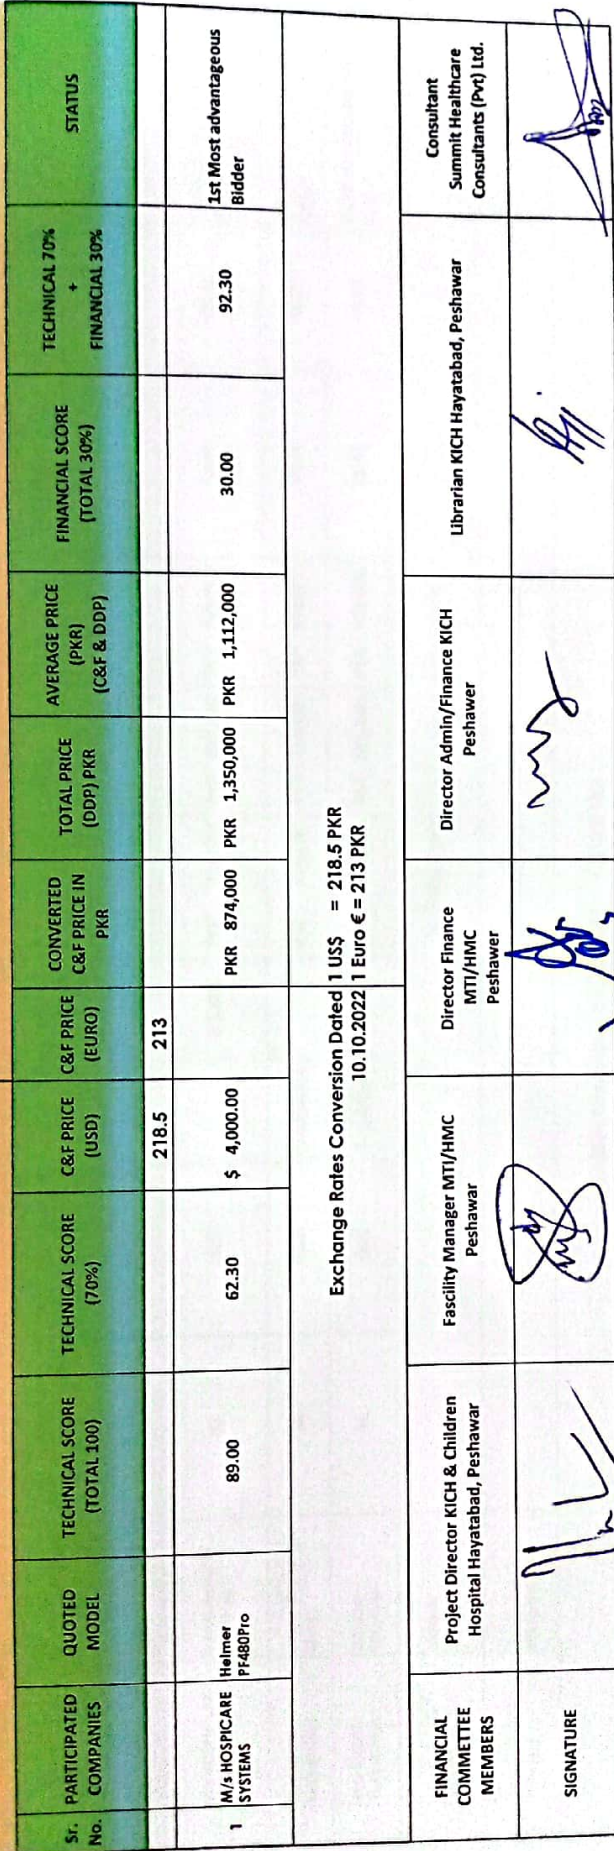 Sr. No.
PARTICIPATED COMPANIES
QUOTED MODEL
TECHNICAL SCORE (TOTAL 100)
TECHNICAL SCORE (70%)
C&F PRICE (USD)
C&F PRICE (EURO)
CONVERTED C&F PRICE IN PKR
TOTAL PRICE (DDP) PKR
AVERAGE PRICE (PKR) (C&F & DDP)
FINANCIAL SCORE (TOTAL 30%)
TECHNICAL 70% + FINANCIAL 30%
STATUS
218.5
213
1
M/s HOSPICARE SYSTEMS
Helmer PF480Pro
89.00
62.30
$ 4,000.00
PKR 874,000
PKR 1,350,000
PKR 1,112,000
30.00
92.30
1st Most advantageous Bidder
Exchange Rates Conversion Dated 1 US$ = 218.5 PKR
10.10.2022 1 Euro € = 213 PKR
FINANCIAL COMMETTEE MEMBERS
Project Director KICH & Children Hospital Hayatabad, Peshawar
Fascility Manager MTI/HMC Peshawar
Director Finance MTI/HMC Peshawer
Director Admin/Finance KICH Peshawer
Librarian KICH Hayatabad, Peshawar
Consultant Summit Healthcare Consultants (Pvt) Ltd.
SIGNATURE